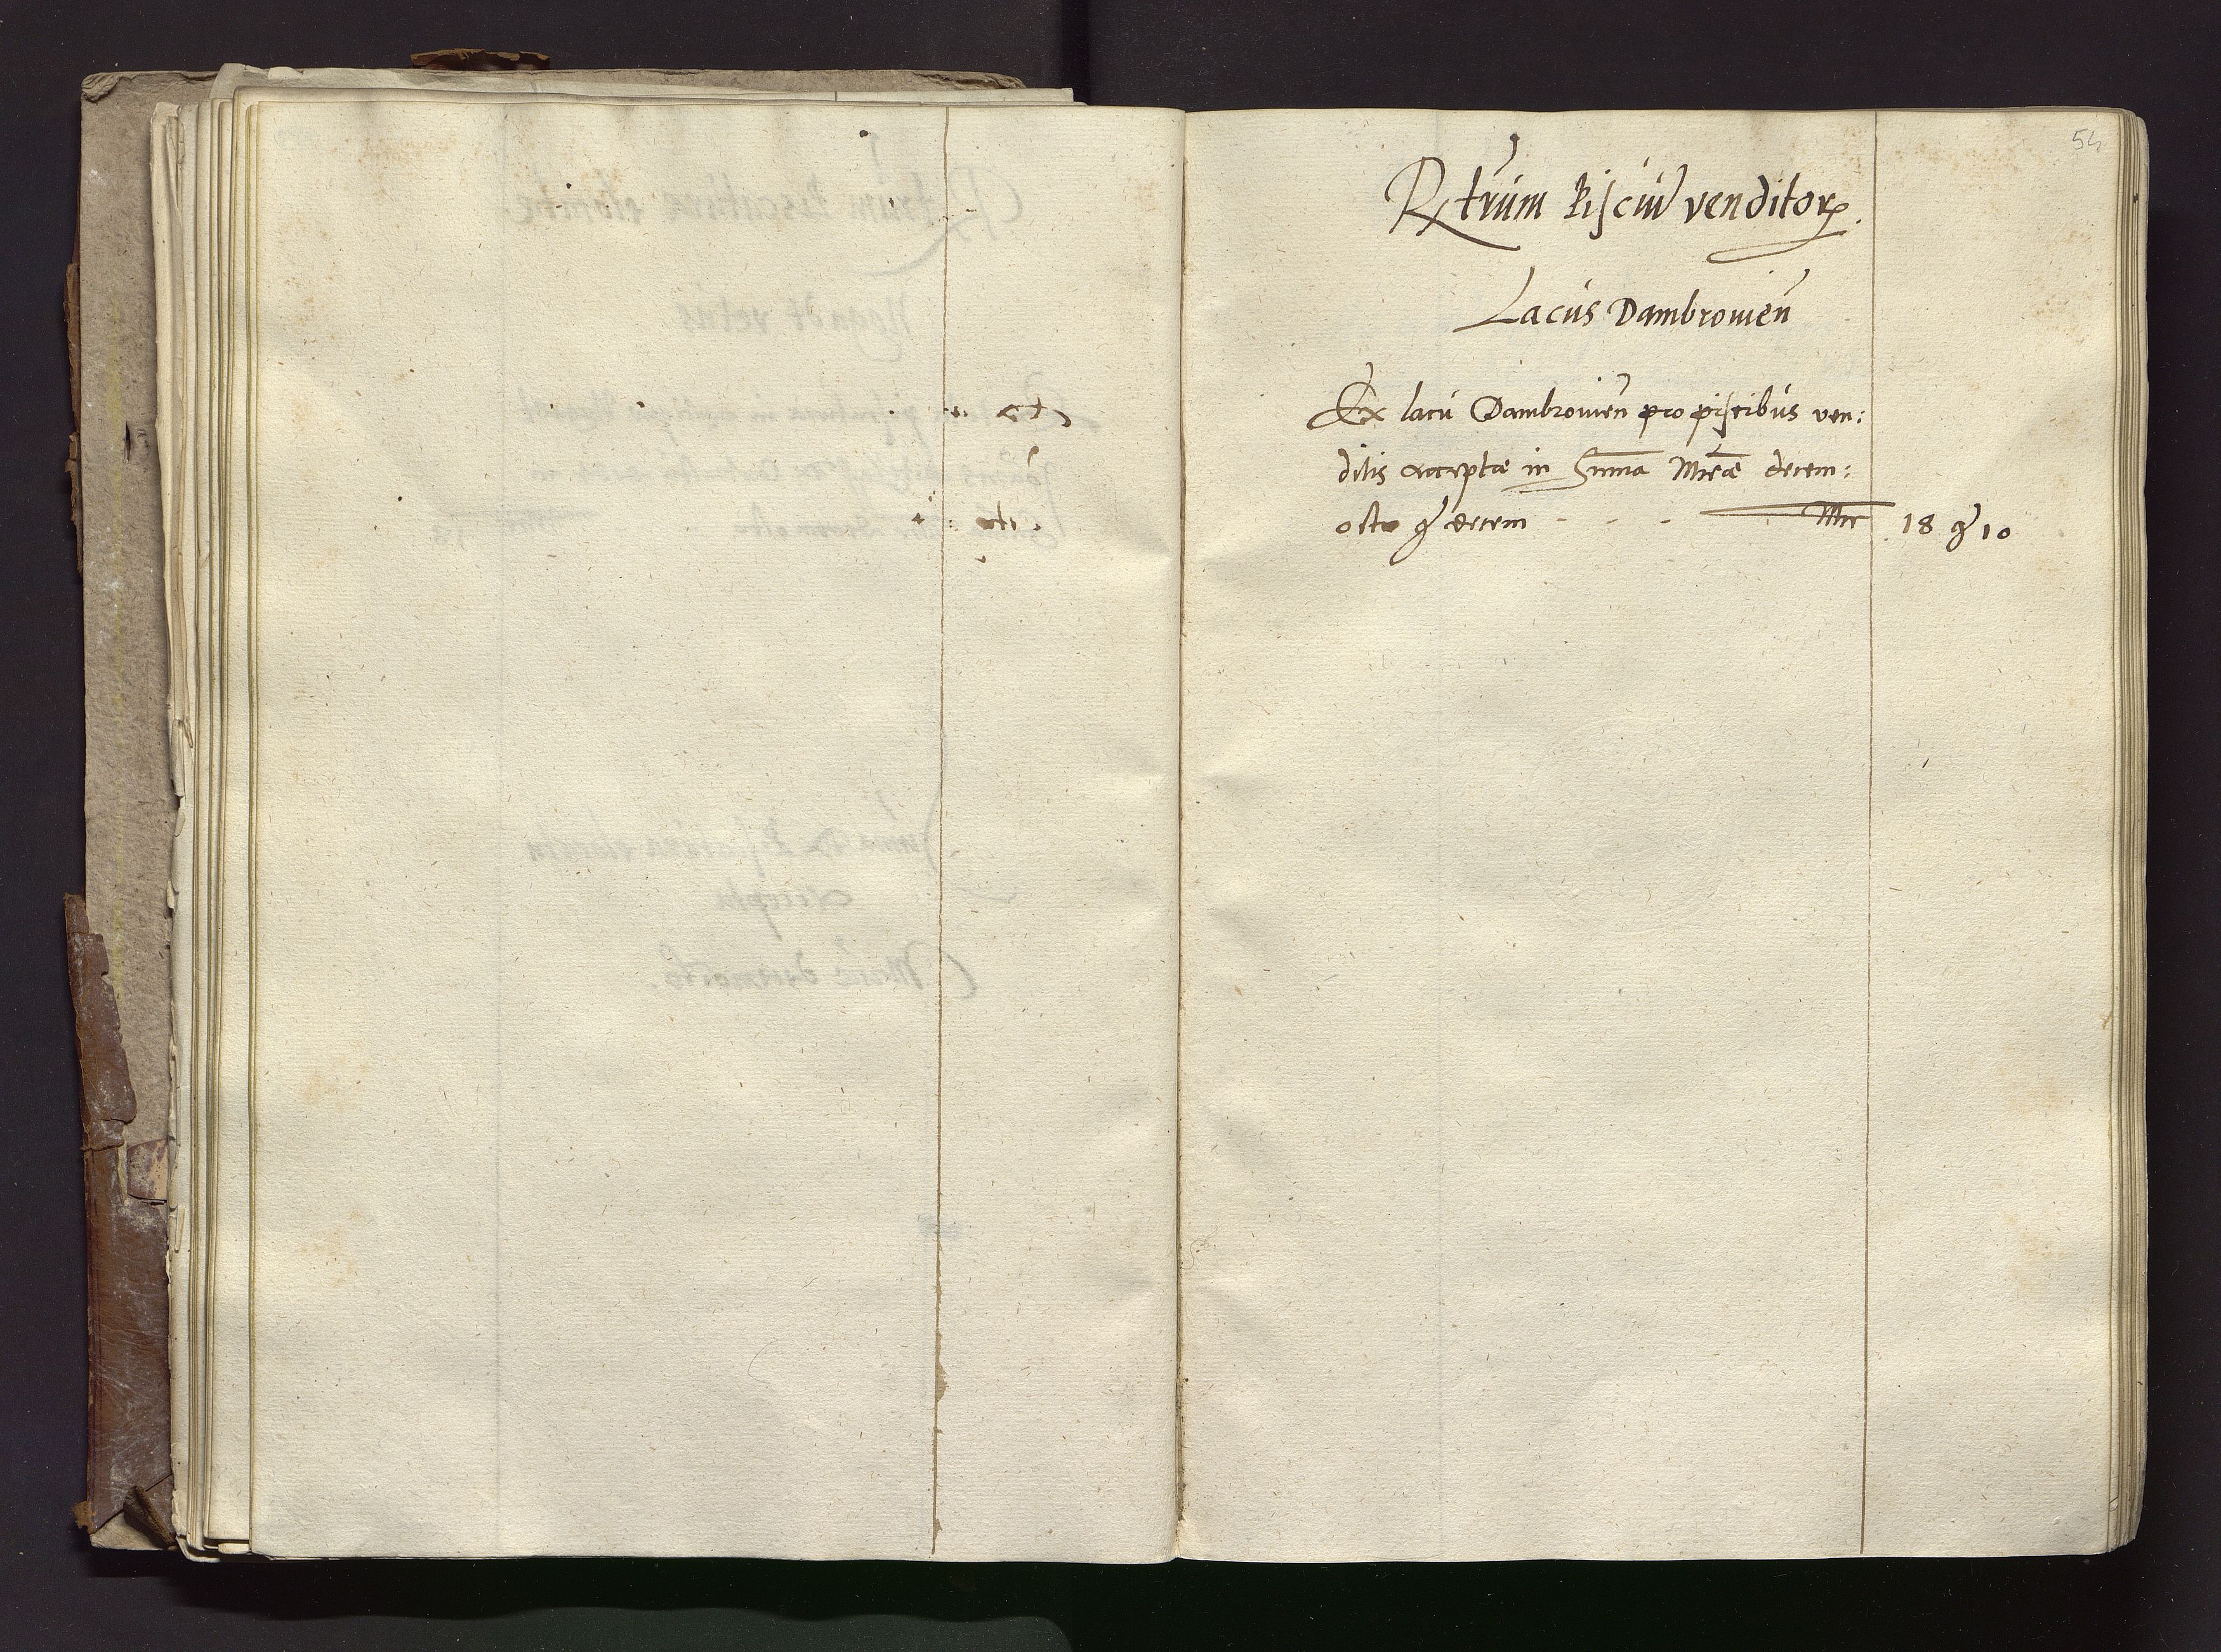 54
Rxtrum Pisciu venditorꝝ.
Lacus Dambrouien
Ex lacu Dambrouien pro piscibus ven:
ditis acceptæ in Summa Mrcæ decem:
octo gͬ decem - - - Mrc 18 gͬ 10